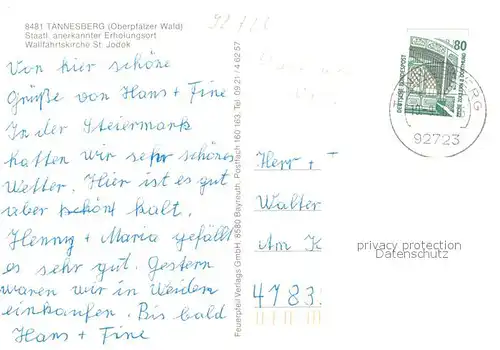 8481 TÄNNESBERG (Oberpfälzer Wald)
Staatl. anerkannter Erholungsort
Wallfahrtskirche St. Jodok
Von hier schöne
Grüße von Hans + Fine
In der Steiermark
hatten wir sehr schönes
Wetter. Hier ist es gut
aber schön kalt.
Henny + Maria gefällt
es sehr gut. Gestern
waren wir in Weiden
einkaufen. Bis bald
Hans + Fine
Feuerpfeil Verlags GmbH, 8580 Bayreuth, Postfach 160 163, Tel. 09 21 / 4 02 57
80
DEUTSCHE BUNDESPOST
92723
Herr + 
Walter
Am K
4783
privacy protection
Datenschutz